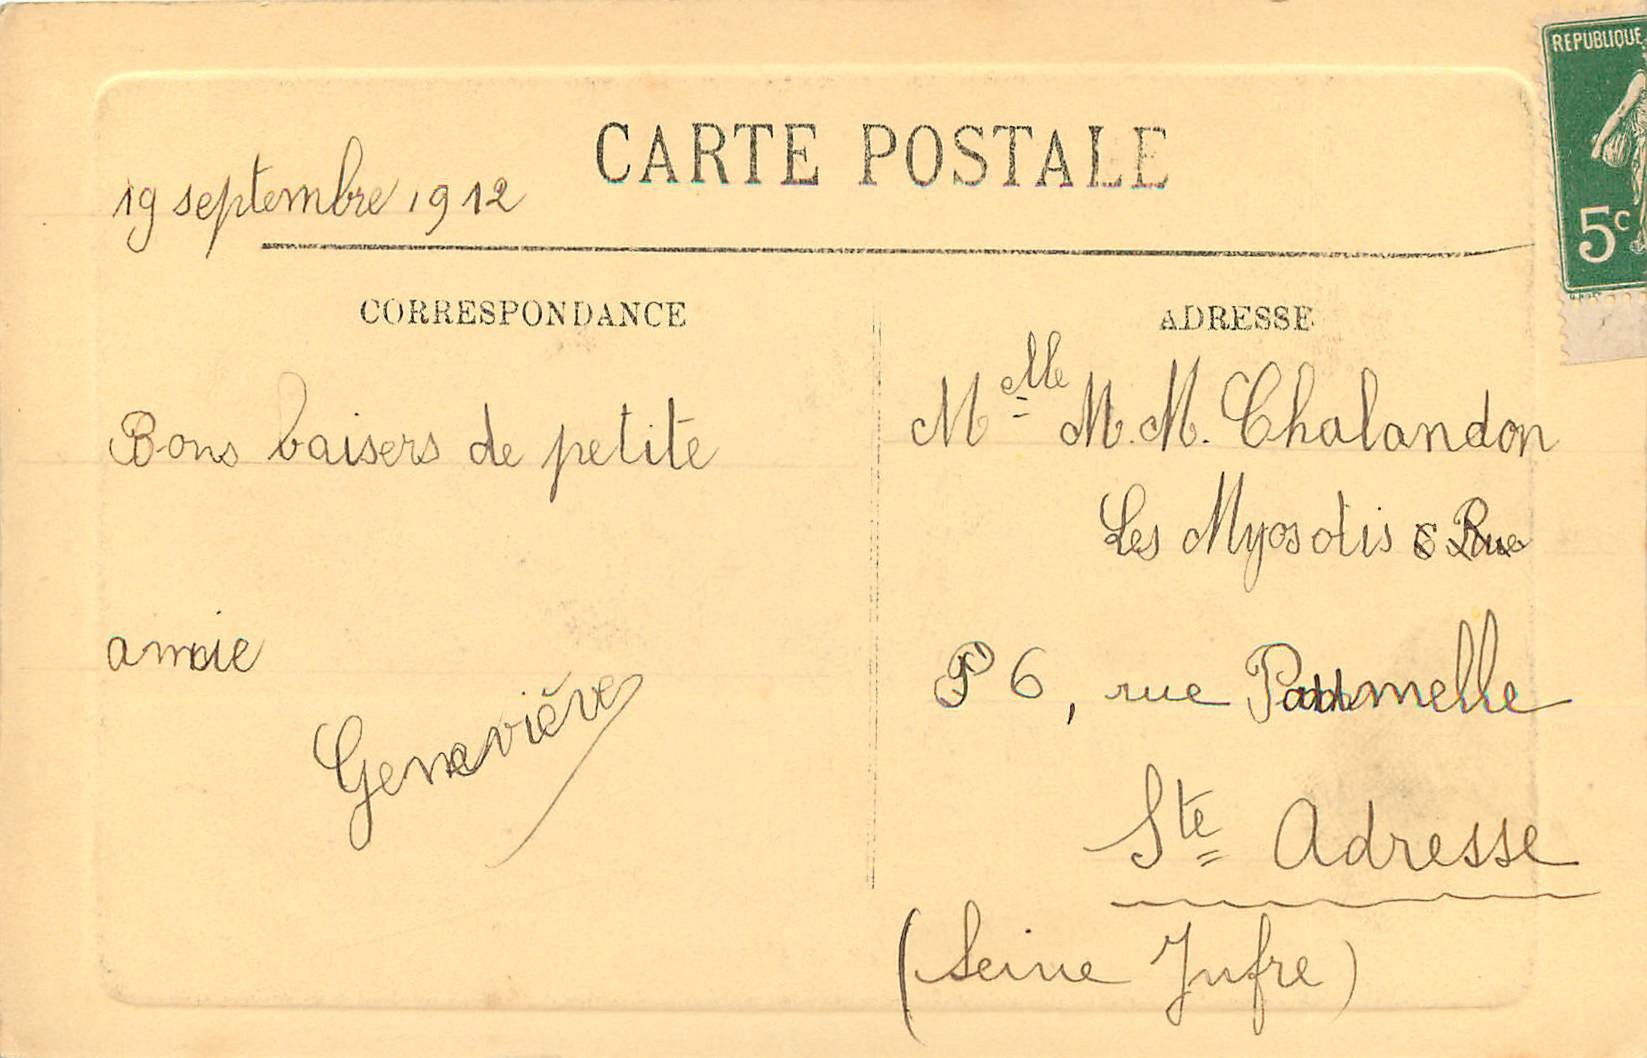 CARTE POSTALE
REPUBLIQUE
5c
19 septembre 1912
CORRESPONDANCE
Bons baisers de petite
amie
Geneviève
ADRESSE
Mlle M. M. Chalandon
Les Myosotis Rue
6, rue Paumelle
Ste Adresse
(Seine Infre)